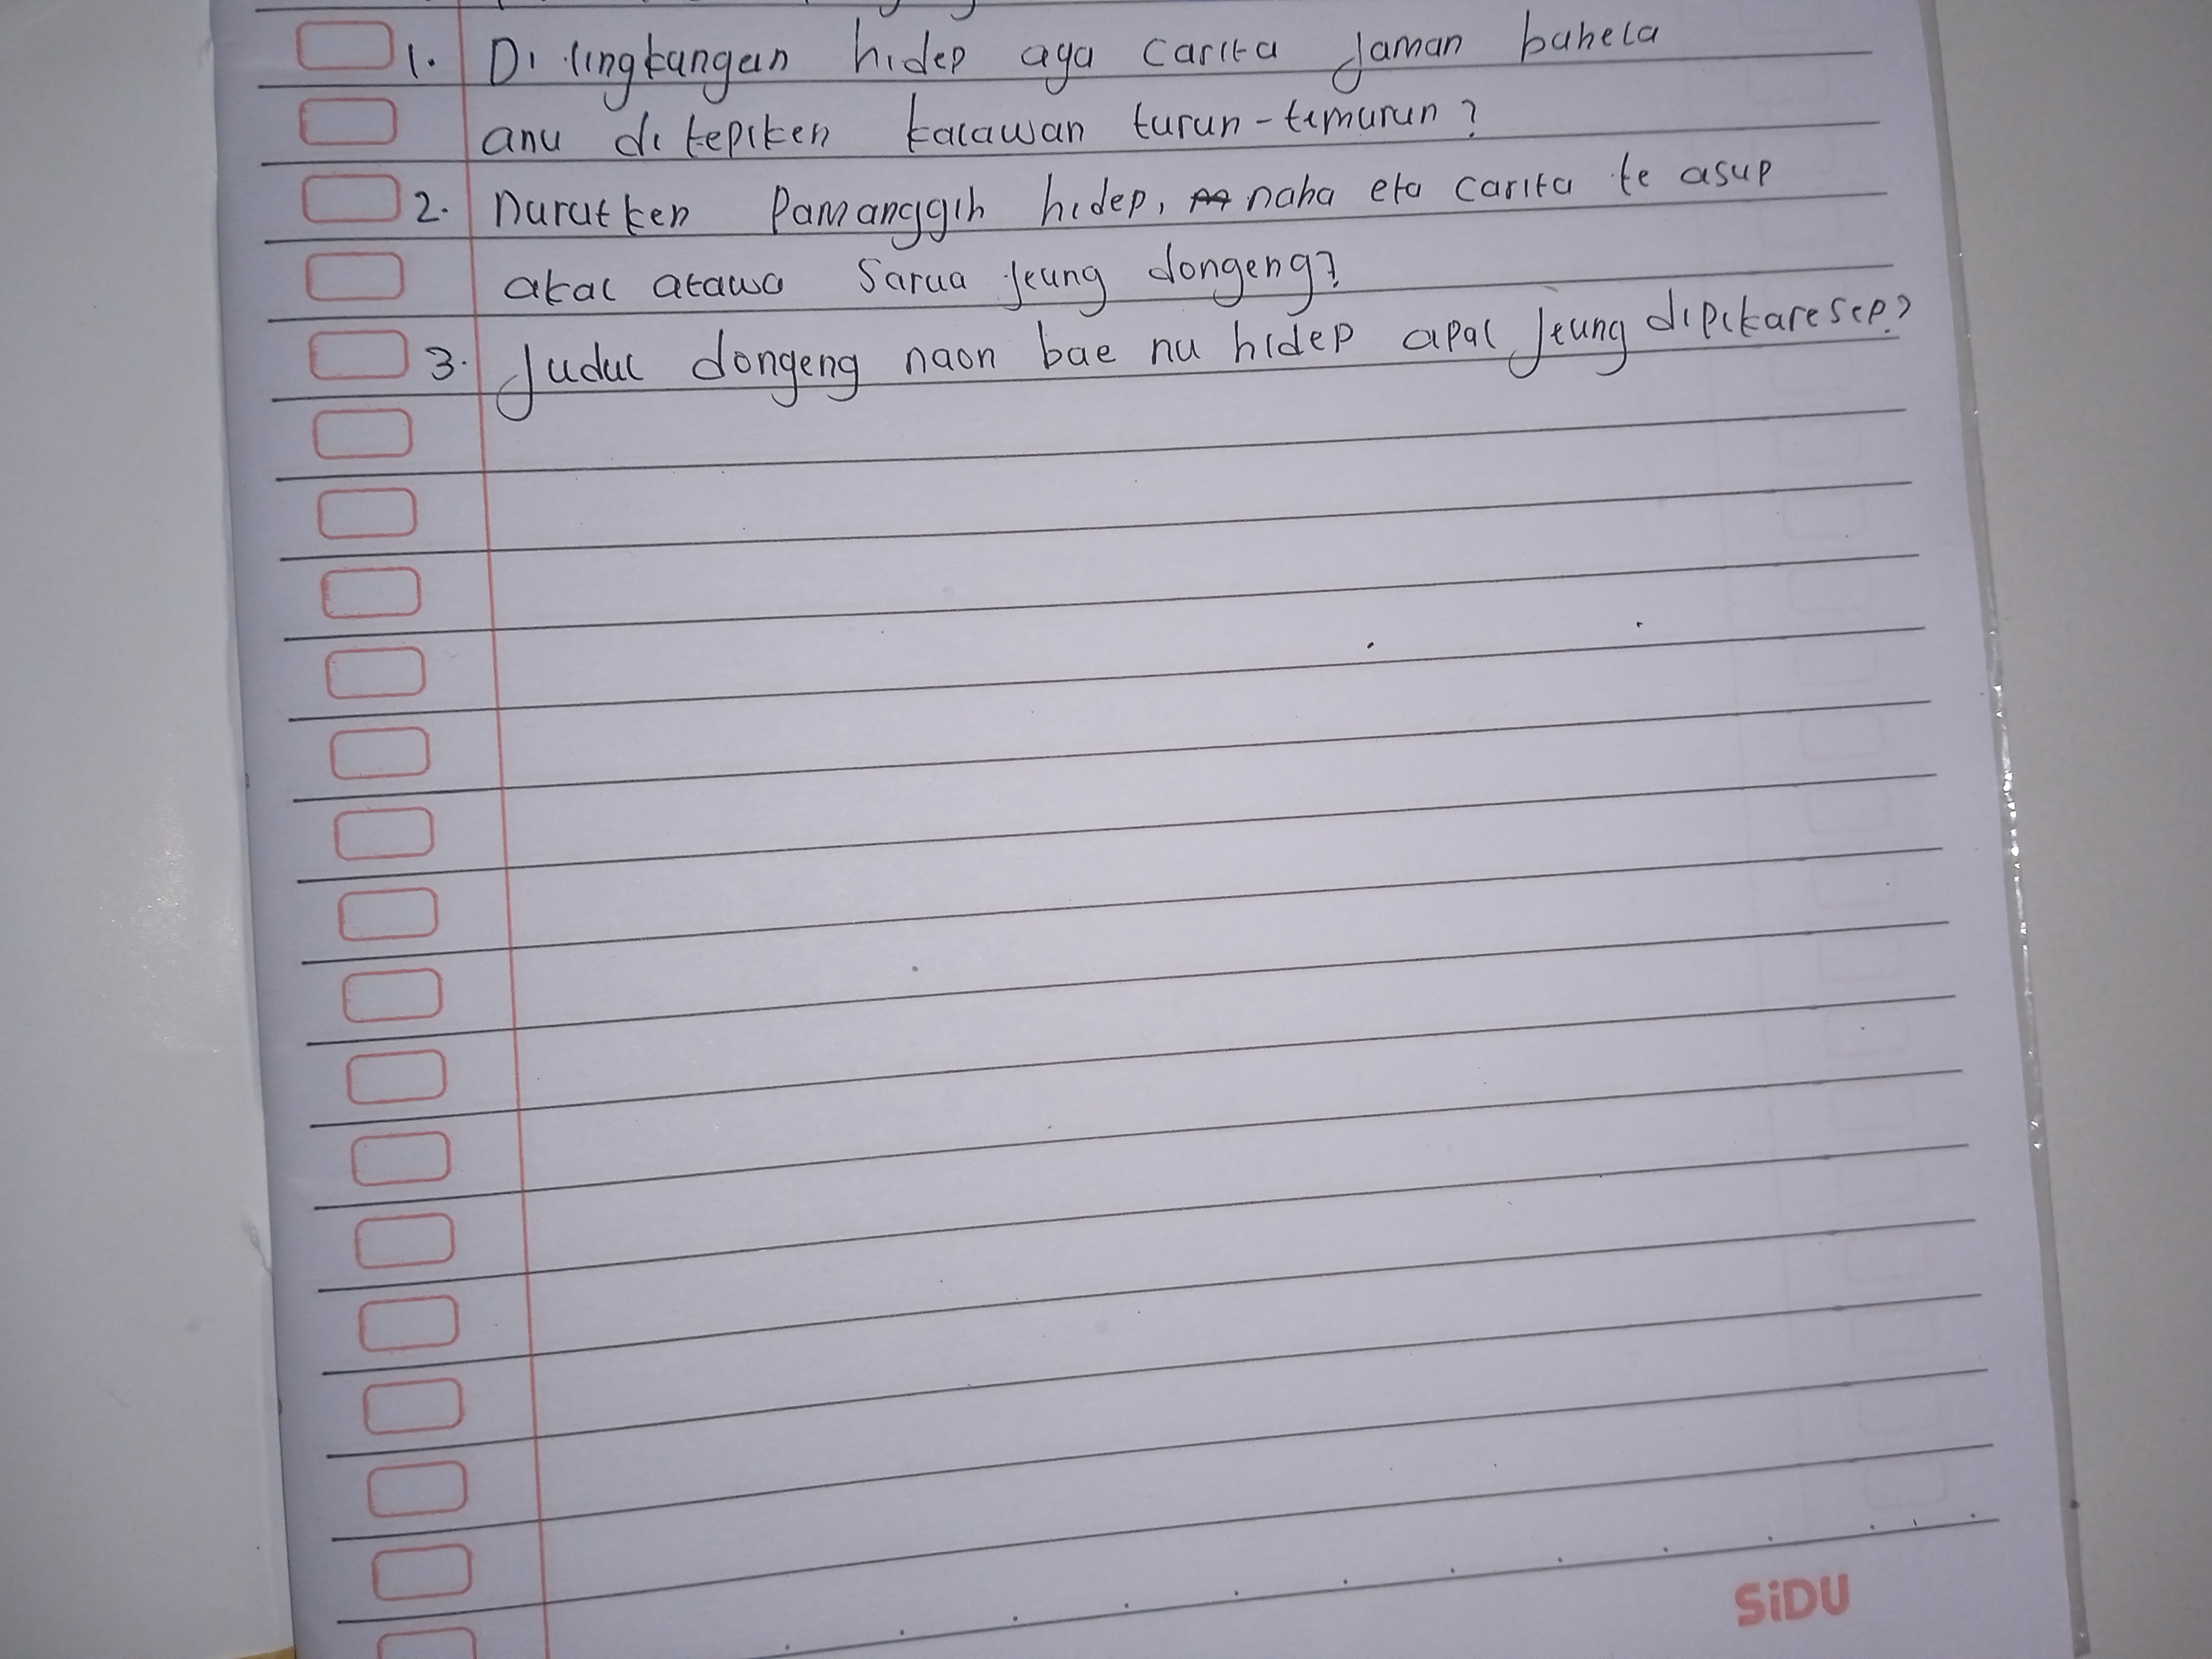 1. Di lingkangan hidep aya carita jaman bahela
anu di tepiken kalawan turun-timurun?
2. nurutken Pamanggih hidep, naha eta carita te asup
akal atawa sarua jeung dongeng?
3. Judul dongeng naon bae nu hidep apal jeung dipikaresep?
SiDU